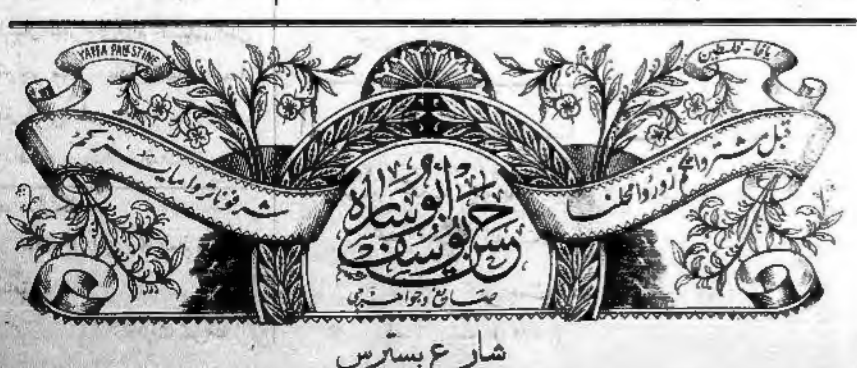 YAFFA PALESTINE
يافا - فلسطين
قبل مشترواتكم زوروا محلنا
شرفونا تروا ما يسركم
حسن يوسف ابو ساره
صايغ وجواهرجي
شارع بسترس